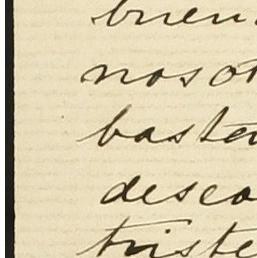 buen
nosot
basta
desea
triste